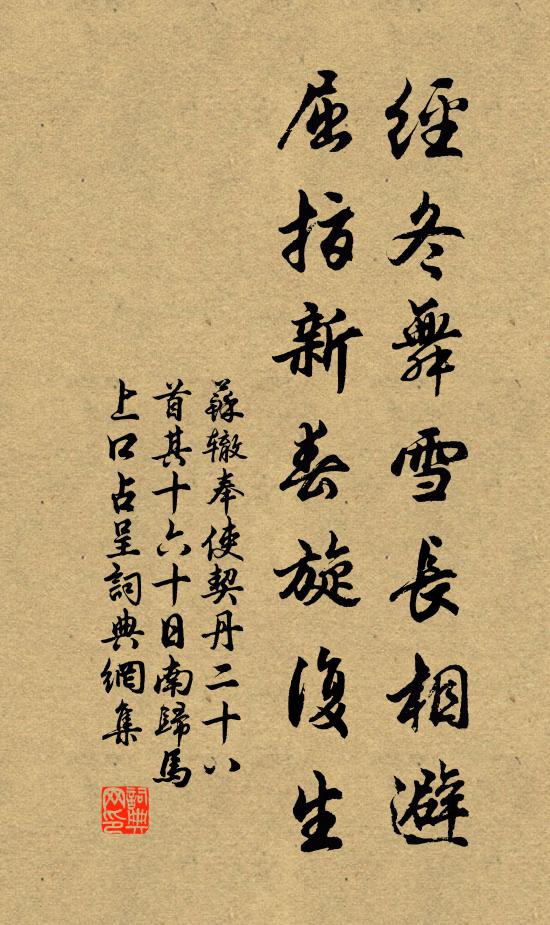 經冬舞雪長相避
屈指新春旋復生
蘇轍奉使契丹二十八
首其十六十日南歸馬
上口占呈詞典網集
詞典
网印